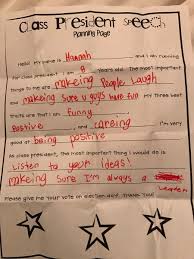 Class President Speech
Planning Page
Hello! My name is Hannah and I am running
for class president. I am 8 years old. The most important
things to me are makeing People Laugh
and makeing sure u guys have fun. My three best
traits are that I am funny,
Positive, and careing. I'm very
good at being positive.
As class president, the most important thing I would do is
Listen to your ideas!
makeing sure I'm always a
Leader
Please give me your vote on election day. Thank you!